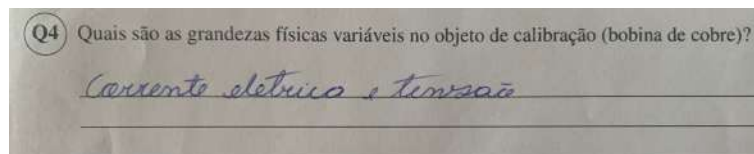 Q4 Quais são as grandezas físicas variáveis no objeto de calibração (bobina de cobre)?
Corrente eletrica e tensaõ